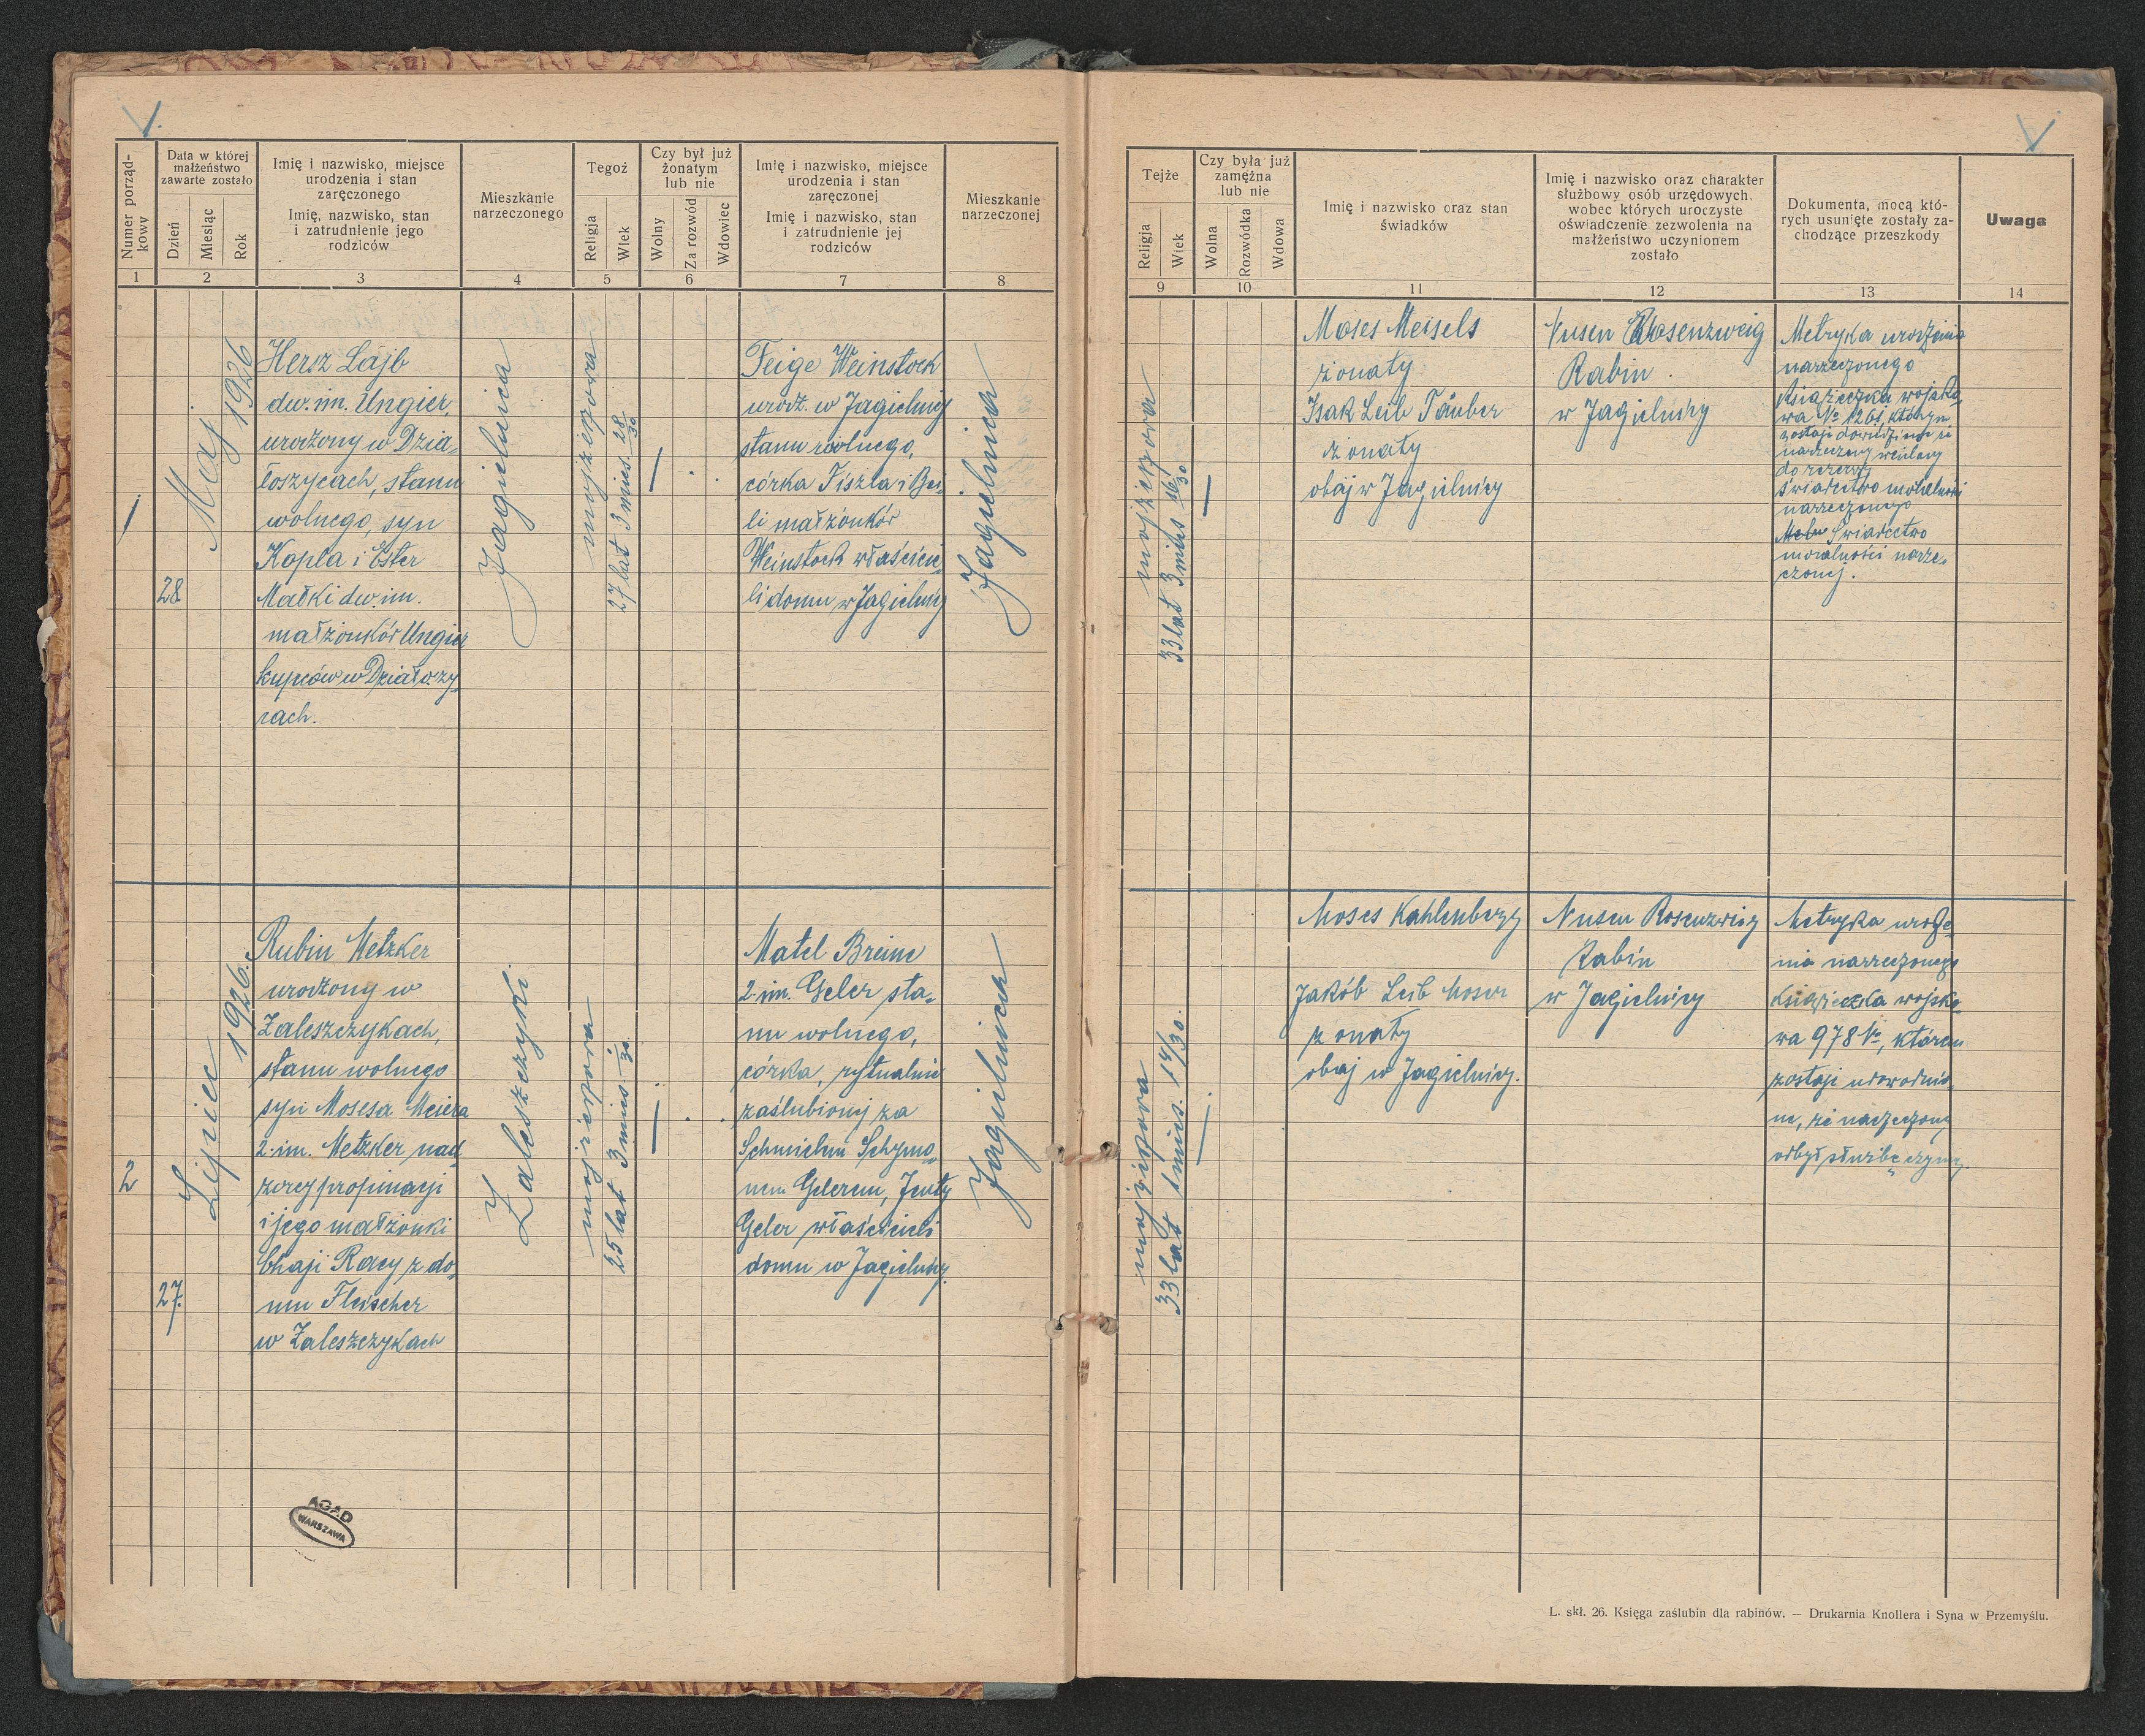 V.
V
Numer porząd-
kowy
Data w której
małżeństwo
zawarte zostało
Dzień
Miesiąc
Rok
Imię i nazwisko, miejsce
urodzenia i stan
zaręczonego
Imię, nazwisko, stan
i zatrudnienie jego
rodziców
Mieszkanie
narzeczonego
Tegoż
Religja
Wiek
Czy był już
żonatym
lub nie
Wolny
Za rozwód
Wdowiec
Imię i nazwisko, miejsce
urodzenia i stan
zaręczonej
Imię i nazwisko, stan
i zatrudnienie jej
rodziców
Mieszkanie
narzeczonej
Tejże
Religja
Wiek
Czy była już
zamężna
lub nie
Wolna
Rozwódka
Wdowa
Imię i nazwisko oraz stan
świadków
Imię i nazwisko oraz charakter
służbowy osób urzędowych,
wobec których uroczyste
oświadczenie zezwolenia na
małżeństwo uczynionem
zostało
Dokumenta, mocą któ-
rych usunięte zostały za-
chodzące przeszkody
Uwaga
1 2 3 4 5 6 7 8 9 10 11 12 13 14
1
28
Maj 1926
Hersz Lajb
dw. im. Ungier,
urodzony w Dzia-
łoszycach, stanu
wolnego, syn
Kopla i Ester
Małki dw. im.
małżonków Ungier
kupców w Działoszy-
cach.
Jagielnica
mojżeszowa
27 lat 3 mies. 28/30
Feige Weinstock
urodz. w Jagielnicy
stanu wolnego,
córka Fiszla i Bei-
li małżonków
Weinstock właścicie-
li domu w Jagielnicy
Jagielnica
mojżeszowa
33 lat 3 mies 16/30
Moses Meisels
żonaty
Isak Leib Täuber
żonaty
obaj w Jagielnicy
Nusen Rosenzweig
Rabin
w Jagielnicy
Metryka urodzenia
narzeczonego
Książeczka wojsko-
wa №
zostaje
narzeczony wcielony
do rezerwy
Świadectwo moralności
narzeczonego
Świadectwo
moralności narze-
czonej.
2
27.
Lipiec 1926.
Rubin Metzker
urodzony w
Zaleszczykach,
stanu wolnego
syn Mosesa Meiera
2. im. Metzker nad-
zorcy propinacji
i jego małżonki
Chaji Racy z do-
mu Fleischer
w Zaleszczykach
Zaleszczyki
mojżeszowa
25 lat 3 mies 1/30.
Matel Breine
2. im. Geler sta-
nu wolnego,
córka, rytualnie
zaślubionej za
Schmielem Schymo-
nem Gelerem, Jenty
Geler właścicieli
domu w Jagielnicy.
Jagielnica
mojżeszowa
33 lat 1 mies. 14/30.
Moses Kahlenberg
Jakób Leib Moser
żonaty
obaj w Jagielnicy.
Nusen Rosenzweig
Rabin
w Jagielnicy
Metryka urodze-
nia narzeczonego
Książeczka wojsko-
wa 978 №, którem
zostaje udowodnio-
ne, że narzeczony
odbył służbę czynną.
AGAD
WARSZAWA
L. skł. 26. Księga zaślubin dla rabinów. — Drukarnia Knollera i Syna w Przemyślu.